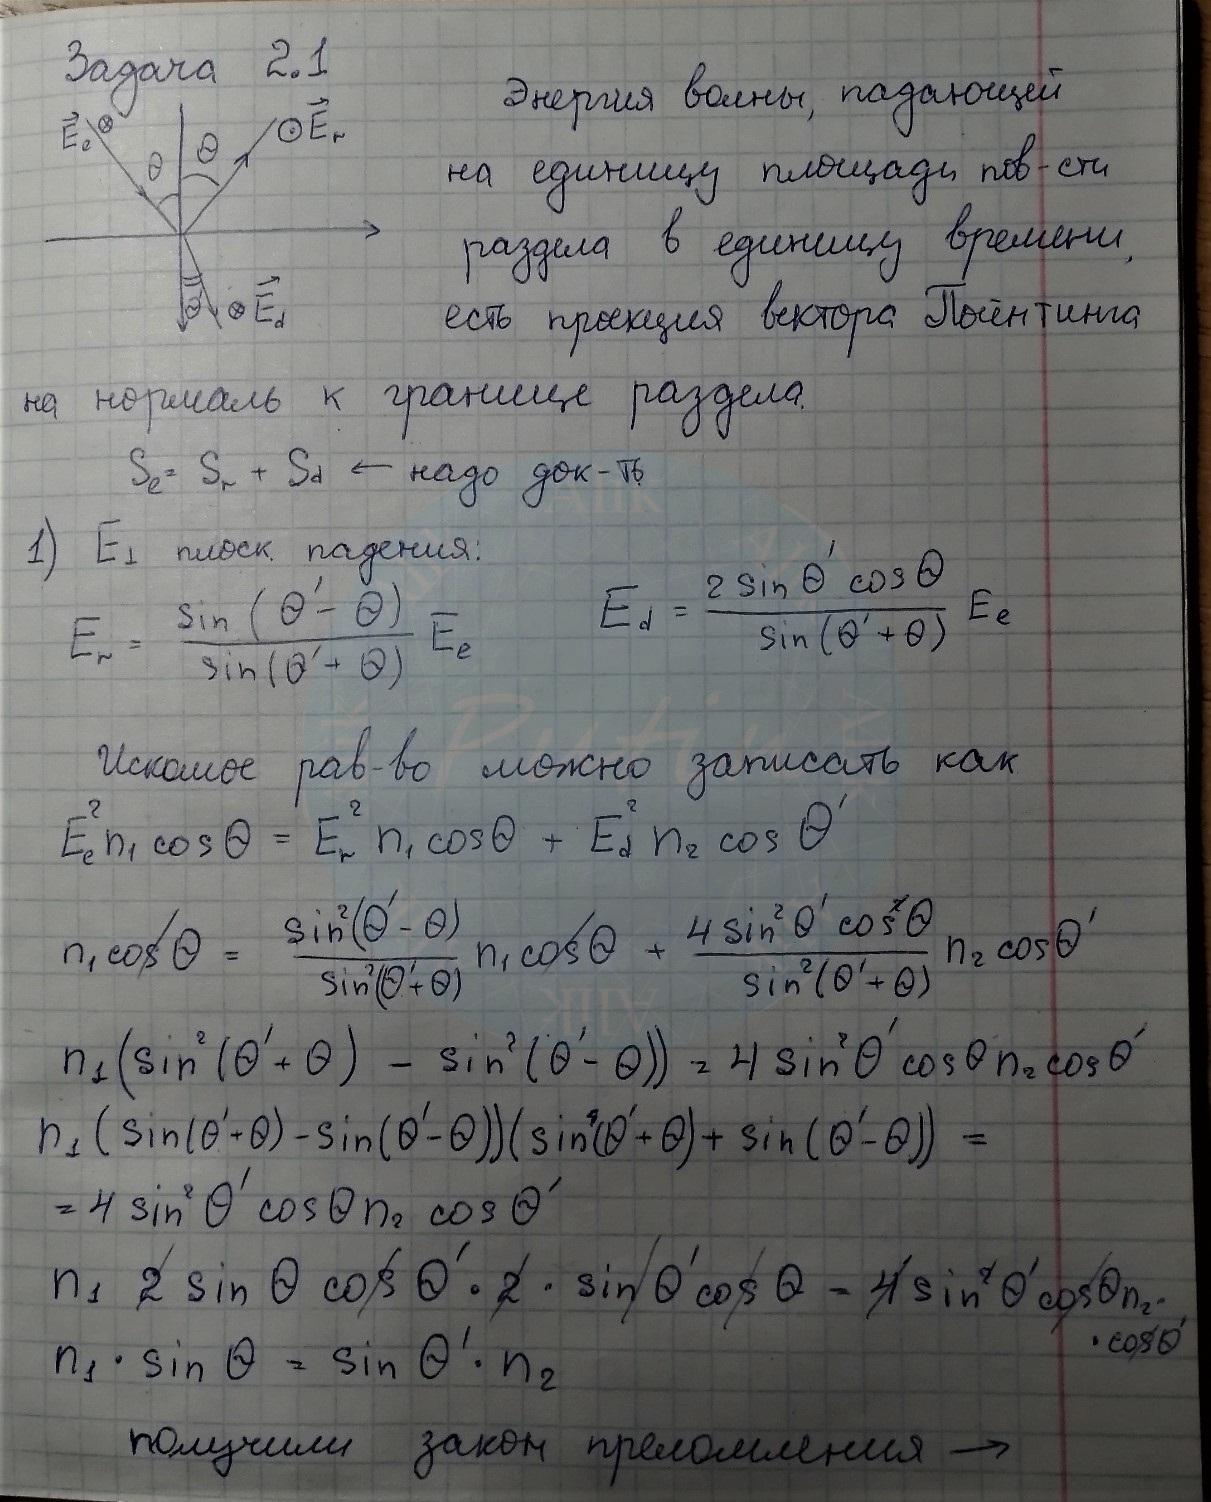 Задача 2.1
E⃗e ⊗ θ θ ⊙ E⃗r
θ' ⊗ E⃗d
Энергия волны, падающей
на единицу площади пов-сти
раздела в единицу времени,
есть проекция вектора Пойнтинга
на нормаль к границе раздела.
Se = Sr + Sd ← надо док-ть
1) E⊥ плоск. падения:
Er = sin(θ' - θ) / sin(θ' + θ) Ee    Ed = 2 sin θ' cos θ / sin(θ' + θ) Ee
Искомое рав-во можно записать как
Ee² n₁ cos θ = Er² n₁ cos θ + Ed² n₂ cos θ'
n₁ cos θ = sin²(θ' - θ) / sin²(θ' + θ) n₁ cos θ + 4 sin² θ' cos² θ / sin²(θ' + θ) n₂ cos θ'
n₁ (sin²(θ' + θ) - sin²(θ' - θ)) = 4 sin² θ' cos θ n₂ cos θ'
n₁ (sin(θ' + θ) - sin(θ' - θ))(sin(θ' + θ) + sin(θ' - θ)) =
= 4 sin² θ' cos θ n₂ cos θ'
n₁ 2 sin θ cos θ' · 2 · sin θ' cos θ = 4 sin² θ' cos θ n₂ ·
· cos θ'
n₁ · sin θ = sin θ' · n₂
получили закон преломления →